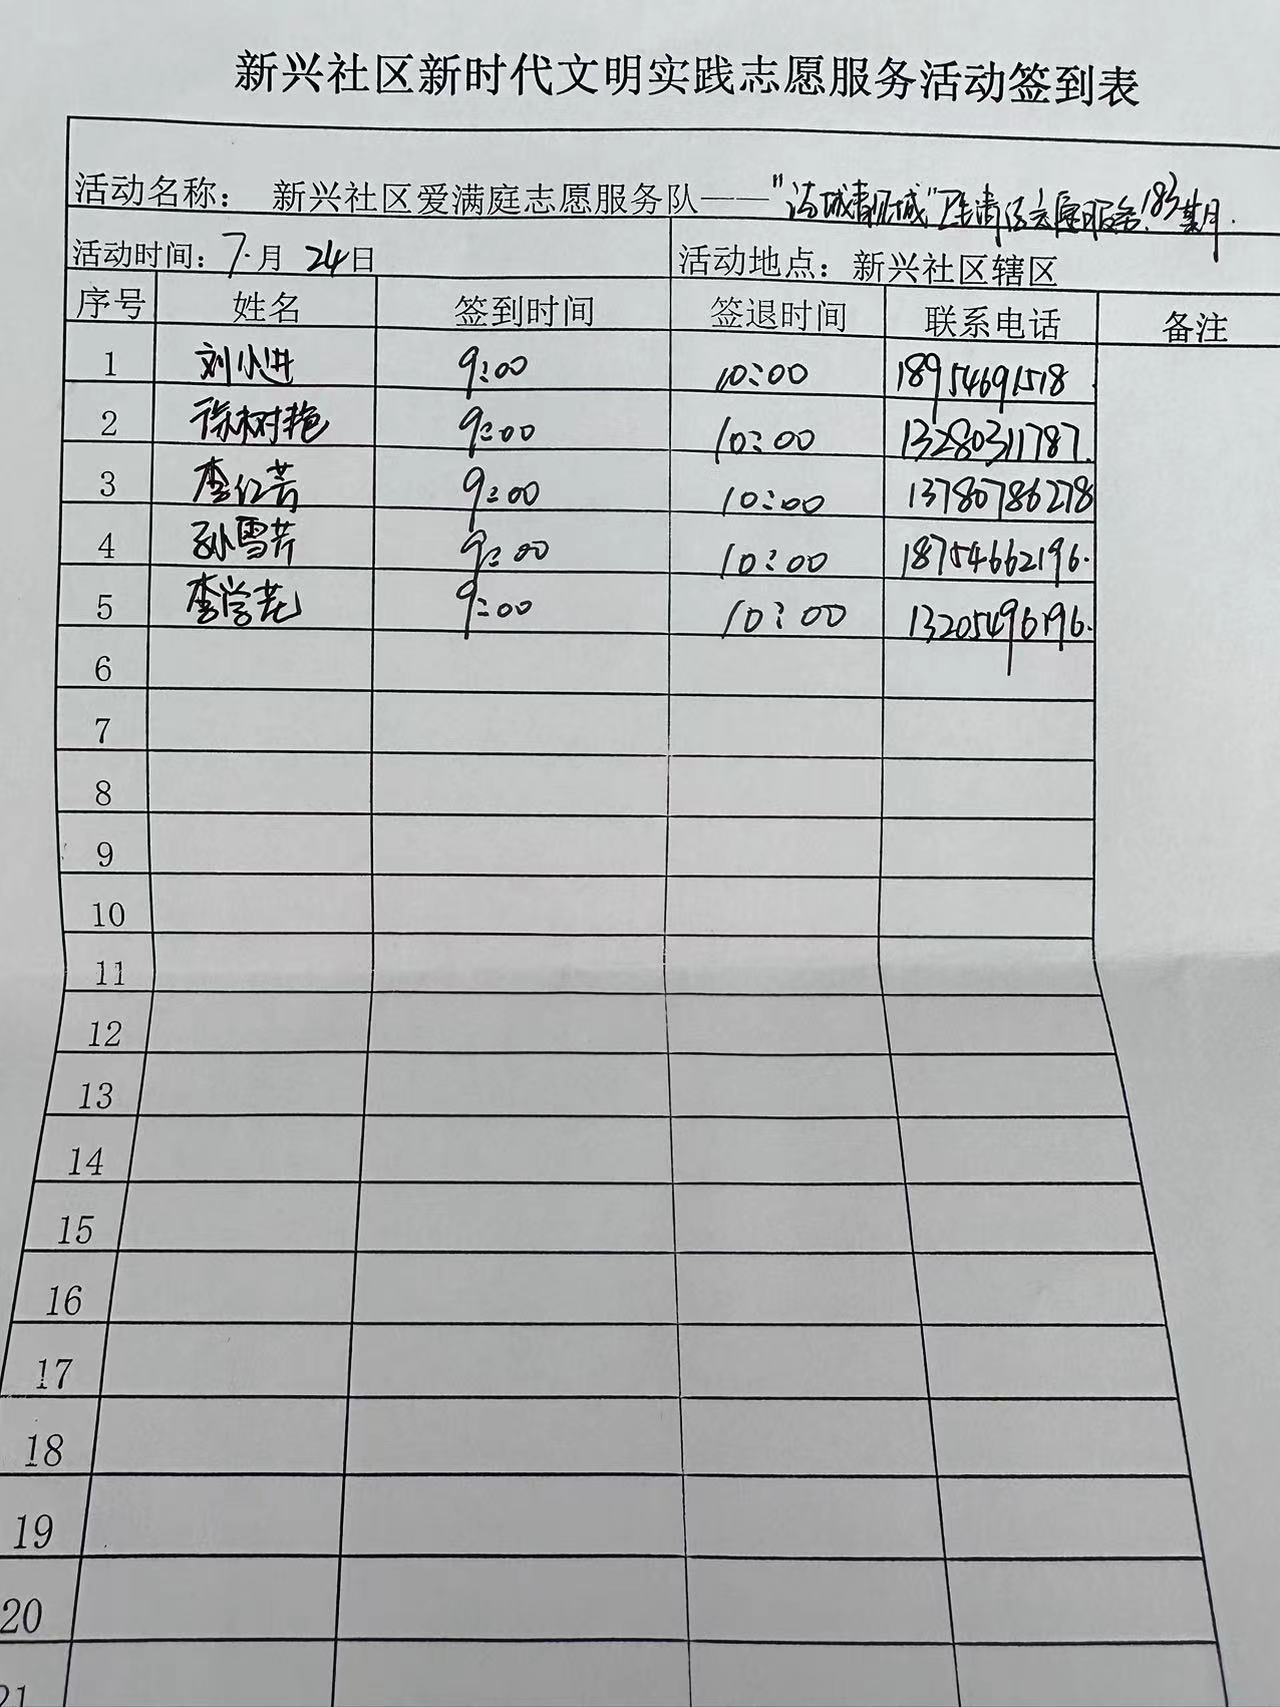 新兴社区新时代文明实践志愿服务活动签到表
活动名称： 新兴社区爱满庭志愿服务队——"清志愿服务183期
活动时间：7.月 24日 活动地点：新兴社区辖区
序号 姓名 签到时间 签退时间 联系电话 备注
1 刘小进 9:00 10:00 18954691518
2 徐树艳 9:00 10:00 13280311787.
3 李红芳 9:00 10:00 13780786278
4 孙雪芹 9:00 10:00 18754662196.
5 李学芝 9:00 10:00 13205496196.
6
7
8
9
10
11
12
13
14
15
16
17
18
19
20
21